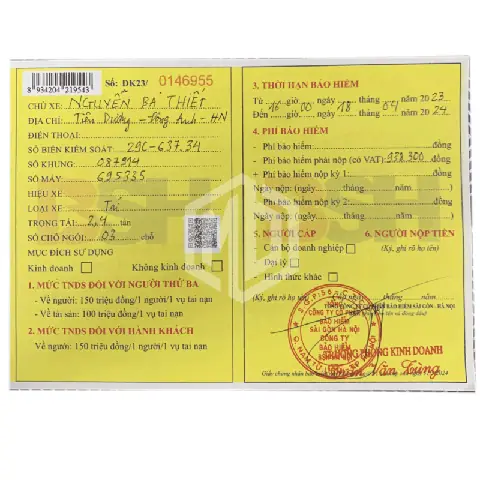 8 934204 219543
Số: ĐK23/ 0146955
CHỦ XE: NGUYỄN BÁ THIẾT
ĐỊA CHỈ: Tiên Dương - Đông Anh - HN
ĐIỆN THOẠI:
SỐ BIỂN KIỂM SOÁT: 29C-637.34
SỐ KHUNG: 087914
SỐ MÁY: 695335
HIỆU XE:
LOẠI XE: Tải
TRỌNG TẢI: 2,4 tấn
SỐ CHỖ NGỒI: 03 chỗ
MỤC ĐÍCH SỬ DỤNG
Kinh doanh Không kinh doanh
1. MỨC TNDS ĐỐI VỚI NGƯỜI THỨ BA
- Về người: 150 triệu đồng/1 người/1 vụ tai nạn
- Về tài sản: 100 triệu đồng/1 vụ tai nạn
2. MỨC TNDS ĐỐI VỚI HÀNH KHÁCH
Về người: 150 triệu đồng/1 người/1 vụ tai nạn
3. THỜI HẠN BẢO HIỂM
Từ 16 giờ 00 ngày 18 tháng 04 năm 2023
Đến giờ ngày tháng năm 2024
4. PHÍ BẢO HIỂM
+ Phí bảo hiểm: đồng
+ Phí bảo hiểm phải nộp (có VAT): 938.300 đồng
+ Phí bảo hiểm nộp kỳ 1: đồng
Ngày nộp: (ngày tháng năm )
+ Phí bảo hiểm nộp kỳ 2: đồng
Ngày nộp: (ngày tháng năm )
5. NGƯỜI CẤP 6. NGƯỜI NỘP TIỀN
- Cán bộ doanh nghiệp (Ký, ghi rõ họ tên)
- Đại lý
- Hình thức khác
(Ký, ghi rõ họ tên)
CÔNG TY CỔ PHẦN
BẢO HIỂM
SÀI GÒN HÀ NỘI
CÔNG TY
BẢO HIỂM
TRƯỞNG PHÒNG KINH DOANH
Văn Lưng